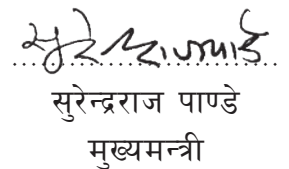 सुरेन्द्रराज पाण्डे
मुख्यमन्त्री